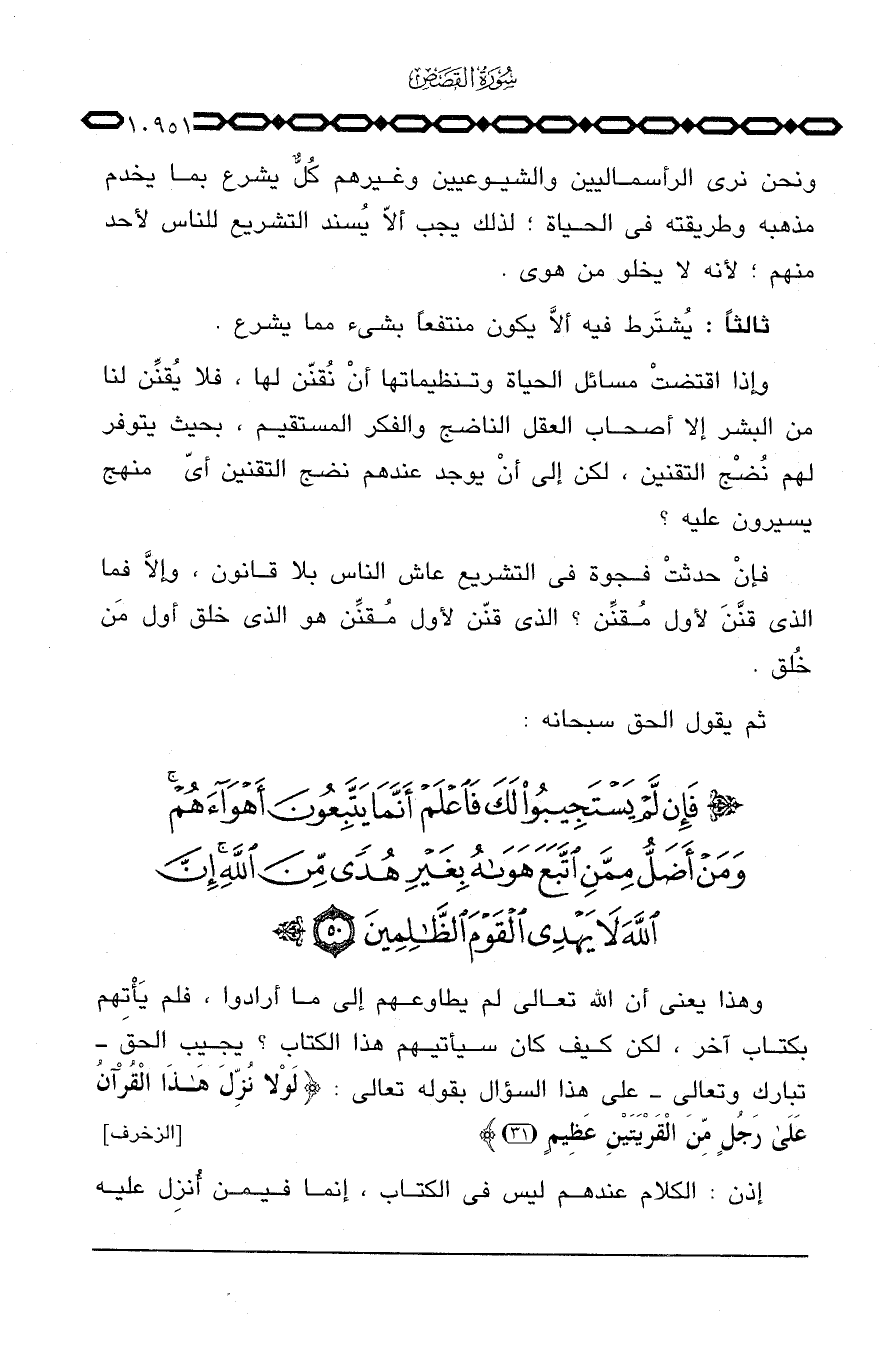 سُورَةُ القَصَصِ
١٠٩٥١
ونحن نرى الرأسماليين والشيوعيين وغيرهم كُلٌّ يشرع بما يخدم
مذهبه وطريقته فى الحياة ؛ لذلك يجب ألاّ يُسند التشريع للناس لأحد
منهم ؛ لأنه لا يخلو من هوى .
ثالثاً : يُشتَرط فيه ألاَّ يكون منتفعاً بشىء مما يشرع .
وإذا اقتضتْ مسائل الحياة وتنظيماتها أنْ نُقنّن لها ، فلا يُقنِّن لنا
من البشر إلا أصحاب العقل الناضج والفكر المستقيم ، بحيث يتوفر
لهم نُضْج التقنين ، لكن إلى أنْ يوجد عندهم نضج التقنين أىّ منهج
يسيرون عليه ؟
فإنْ حدثتْ فجوة فى التشريع عاش الناس بلا قانون ، وإلاَّ فما
الذى قنَّنَ لأول مُقنِّن ؟ الذى قنّن لأول مُقنِّن هو الذى خلق أول مَن
خُلق .
ثم يقول الحق سبحانه :
﴿ فَإِن لَّمْ يَسْتَجِيبُوا۟ لَكَ فَٱعْلَمْ أَنَّمَا يَتَّبِعُونَ أَهْوَآءَهُمْ ۚ
وَمَنْ أَضَلُّ مِمَّنِ ٱتَّبَعَ هَوَىٰهُ بِغَيْرِ هُدًى مِّنَ ٱللَّهِ ۚ إِنَّ
ٱللَّهَ لَا يَهْدِى ٱلْقَوْمَ ٱلظَّـٰلِمِينَ ٥٠ ﴾
وهذا يعنى أن الله تعالى لم يطاوعهم إلى ما أرادوا ، فلم يَأْتِهم
بكتاب آخر ، لكن كيف كان سيأتيهم هذا الكتاب ؟ يجيب الحق –
تبارك وتعالى – على هذا السؤال بقوله تعالى : ﴿ لَوْلا نُزِّلَ هَـٰذَا الْقُرْآنُ
عَلَىٰ رَجُلٍ مِّنَ الْقَرْيَتَيْنِ عَظِيمٍ (٣١) ﴾ [الزخرف]
إذن : الكلام عندهم ليس فى الكتاب ، إنما فيمن أُنزِل عليه